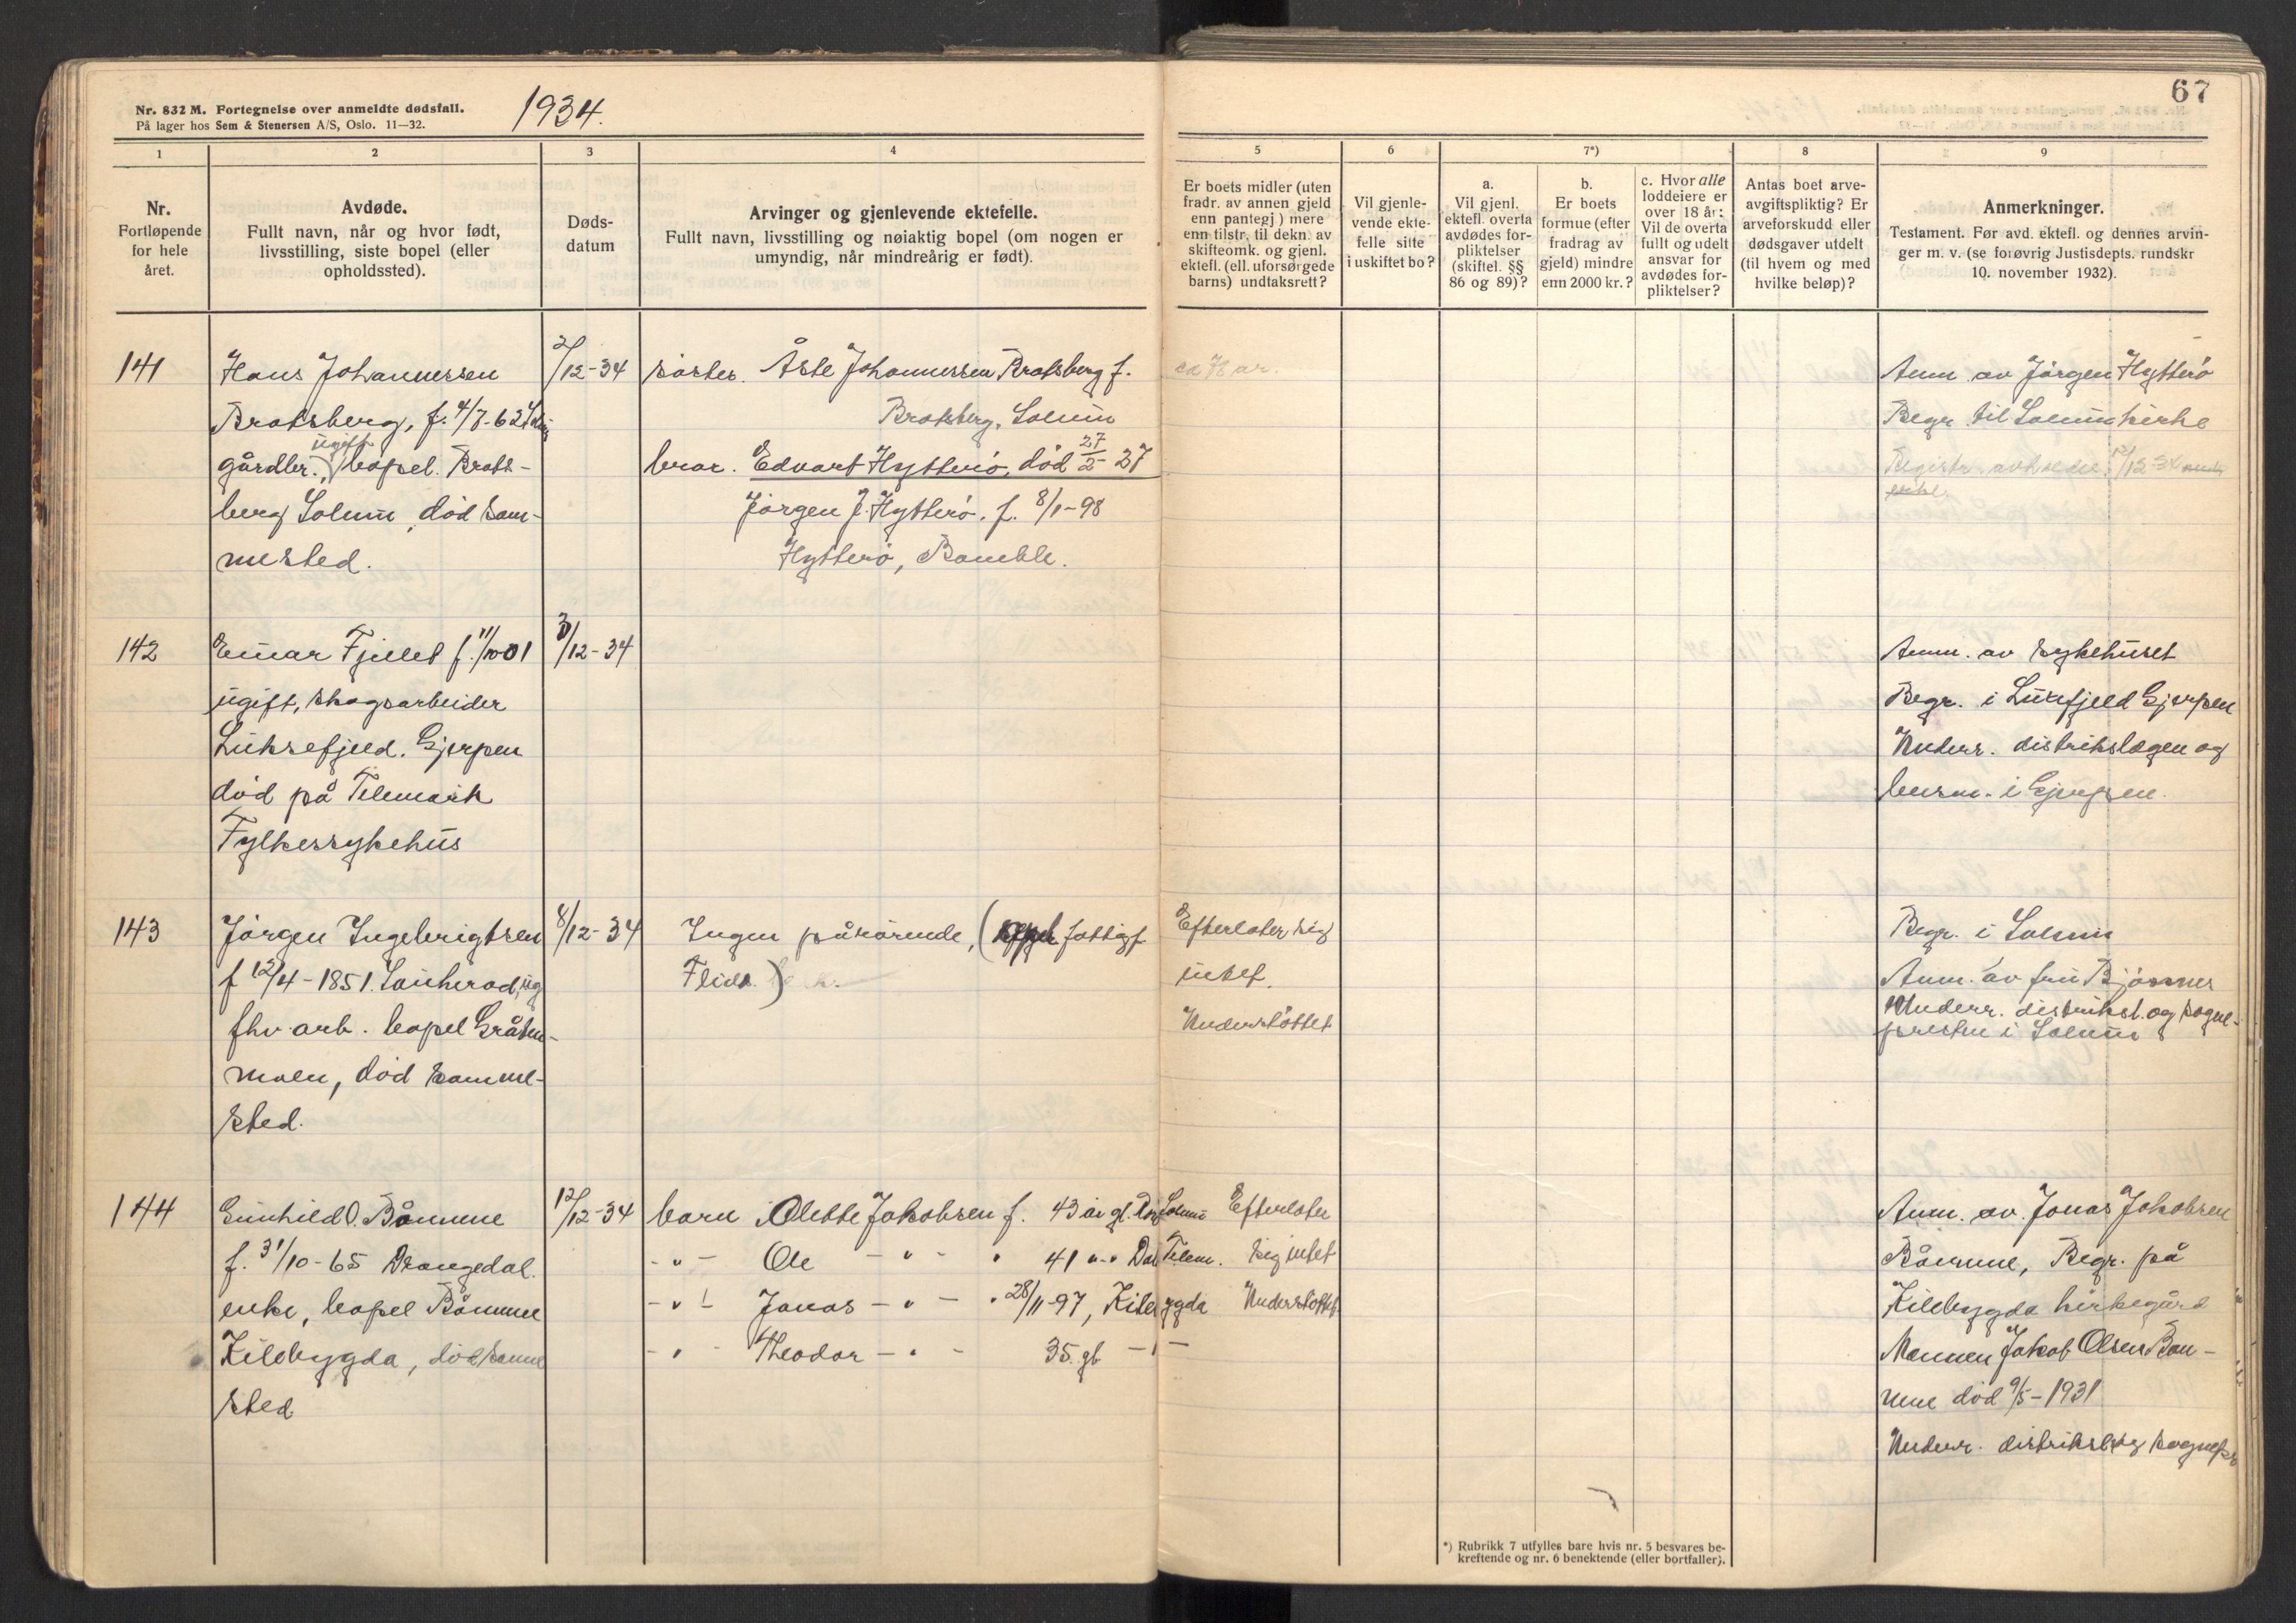 Nr. 832 M. Fortegnelse over anmeldte dødsfall.
På lager hos Sem & Stenersen A/S, Oslo. 11—32.
1934.
67
1
2
3
4
5
6
7*)
8
9
Nr.
Fortløpende
for hele
året.
Avdøde.
Fullt navn, når og hvor født,
livsstilling, siste bopel (eller
opholdssted).
Døds-
datum
Arvinger og gjenlevende ektefelle.
Fullt navn, livsstilling og nøiaktig bopel (om nogen er
umyndig, når mindreårig er født).
Er boets midler (uten
fradr. av annen gjeld
enn pantegj) mere
enn tilstr. til dekn. av
skifteomk. og gjenl.
ektefl. (ell. uforsørgede
barns) undtaksrett?
Vil gjenle-
vende ekte-
felle sitte
i uskiftet bo?
a.
Vil gjenl.
ektefl. overta
avdødes for-
pliktelser
(skiftel. §§
86 og 89)?
b.
Er boets
formue (efter
fradrag av
gjeld) mindre
enn 2000 kr.?
c. Hvor alle
loddeiere er
over 18 år:
Vil de overta
fullt og udelt
ansvar for
avdødes for-
pliktelser?
Antas boet arve-
avgiftspliktig? Er
arveforskudd eller
dødsgaver utdelt
(til hvem og med
hvilke beløp)?
Anmerkninger.
Testament. Før avd. ektefl. og dennes arvin-
ger m. v. (se forøvrig Justisdepts. rundskr
10. november 1932).
141
Hans Johannessen
Bratsberg, f. 4/7-62
ugift
gårdbr., bopel. Brats-
berg Solum, død sam-
mested.
2/12-34
søster. Åste Johannessen Bratsberg f.
Bratsberg, Solum
bror. Edvart Hytterö, död 27/2-27
Jörgen J. Hytterö. f. 8/1-98
Hytterö, Bamble.
Anm av Jörgen Hytterö
Begr til Solum kirke
142
Einar Fjellet f. 11/10-01
ugift, skogsarbeider
Luksefjeld. Gjerpen
död på Telemark
Fylkessykehus
3/12-34
Anm. av sykehuset
Begr. i Luksefjeld Gjerpen
Underr. distrikslægen og
lensm. i Gjerpen.
143
Jörgen Ingebrigtsen
f 12/4-1851. Sauherad, ug
fhv. arb. bopel Gråten-
moen, död samme-
sted.
8/12-34
Ingen pårørende, ( fattigf.
Flid. )
Efterlater sig
intet.
Understöttet
Begr. i Solum
Anm. av fru Bjönnes
Underr. distriksl. og sogne-
presten i Solum
144
Gunhild O. Bånnne
f. 31/10-65 Drangedal.
enke, bopel Bånnne
Kilebygda, död samme
sted
12/12-34
barn Olette Jakobsen f. 43 år gl. Solum
-"- Ole -"- " 41 "-" Telem.
-"- Jonas -"- " 28/11-97, Kilebygda
-"- Theodor -"- 35. gl -"-
Efterlater
sig intet
Understöttet
Anm. av Jonas Jakobsen
Bånnne, Begr. på
Kilebygda kirkegård
Mannen Jakob Olsen Bån-
nne död 9/5-1931
Underr. distriksl. og sognepr
*) Rubrikk 7 utfylles bare hvis nr. 5 besvares be-
kreftende og nr. 6 benektende (eller bortfaller).